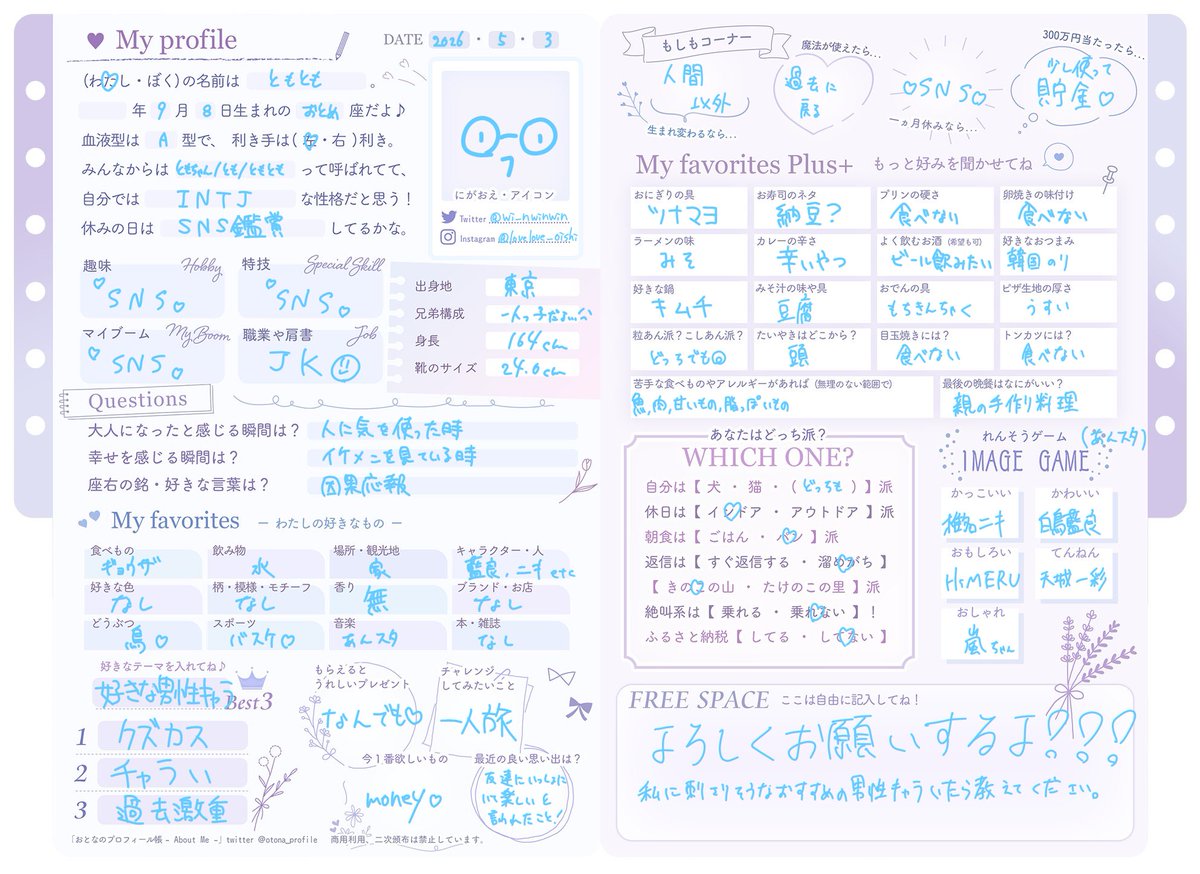 My profile
DATE 2026 ・ 5 ・ 3
(わたし・ぼく)の名前は ともとも 。
年 9 月 8 日生まれの おとめ 座だよ♪
血液型は A 型で、 利き手は( 左・右 )利き。
みんなからは ともちゃん/とも/ともとも って呼ばれてて、
自分では INTJ な性格だと思う！
休みの日は SNS鑑賞 してるかな。
にがおえ・アイコン
Twitter @wi_nwinwin
Instagram @lovelove_oishi
趣味 Hobby
♡SNS♡
特技 Special Skill
♡SNS♡
マイブーム My Boom
♡SNS♡
職業や肩書 Job
JK
出身地 東京
兄弟構成 一人っ子だよ…☆
身長 164cm
靴のサイズ 24.0cm
Questions
大人になったと感じる瞬間は？ 人に気を使った時
幸せを感じる瞬間は？ イケメンを見ている時
座右の銘・好きな言葉は？ 因果応報
My favorites ― わたしの好きなもの ―
食べもの ギョウザ
飲み物 水
場所・観光地 家
キャラクター・人 藍良、ニキ etc
好きな色 なし
柄・模様・モチーフ なし
香り 無
ブランド・お店 なし
どうぶつ 鳥♡
スポーツ バスケ♡
音楽 あんスタ
本・雑誌 なし
好きなテーマを入れてね♪
好きな男性キャラ Best3
1 クズカス
2 チャラい
3 過去激重
もらえるとうれしいプレゼント
なんでも♡
チャレンジしてみたいこと
一人旅
今1番欲しいもの
money♡
最近の良い思い出は？
友達にいっしょに
いて楽しいと
言われたこと！
「おとなのプロフィール帳 - About Me -」twitter @otona_profile 商用利用、二次頒布は禁止しています。
もしもコーナー
人間
以外
生まれ変わるなら...
魔法が使えたら...
過去に
戻る
♡SNS♡
一ヵ月休みなら...
300万円当たったら...
少し使って
貯金♡
My favorites Plus+ もっと好みを聞かせてね
おにぎりの具 ツナマヨ
お寿司のネタ 納豆？
プリンの硬さ 食べない
卵焼きの味付け 食べない
ラーメンの味 みそ
カレーの辛さ 辛いやつ
よく飲むお酒 (希望も可) ビール飲みたい
好きなおつまみ 韓国のり
好きな鍋 キムチ
みそ汁の味や具 豆腐
おでんの具 もちきんちゃく
ピザ生地の厚さ うすい
粒あん派？こしあん派？ どっちでも
たいやきはどこから？ 頭
目玉焼きには？ 食べない
トンカツには？ 食べない
苦手な食べものやアレルギーがあれば (無理のない範囲で)
魚,肉,甘いもの,脂っぽいもの
最後の晩餐はなにがいい？
親の手作り料理
あなたはどっち派？
WHICH ONE?
自分は【 犬 ・ 猫 ・ ( どっちも ) 】派
休日は【 インドア ・ アウトドア 】派
朝食は【 ごはん ・ パン 】派
返信は【 すぐ返信する ・ 溜めがち 】
【 きのこの山 ・ たけのこの里 】派
絶叫系は【 乗れる ・ 乗れない 】！
ふるさと納税【 してる ・ してない 】
れんそうゲーム (あんスタ)
IMAGE GAME
かっこいい
椎名ニキ
かわいい
白鳥藍良
おもしろい
HiMERU
てんねん
天城一彩
おしゃれ
嵐ちゃん
FREE SPACE ここは自由に記入してね！
よろしくお願いするよ！？！？！？
私に刺さりそうなおすすめの男性キャラいたら教えてください。